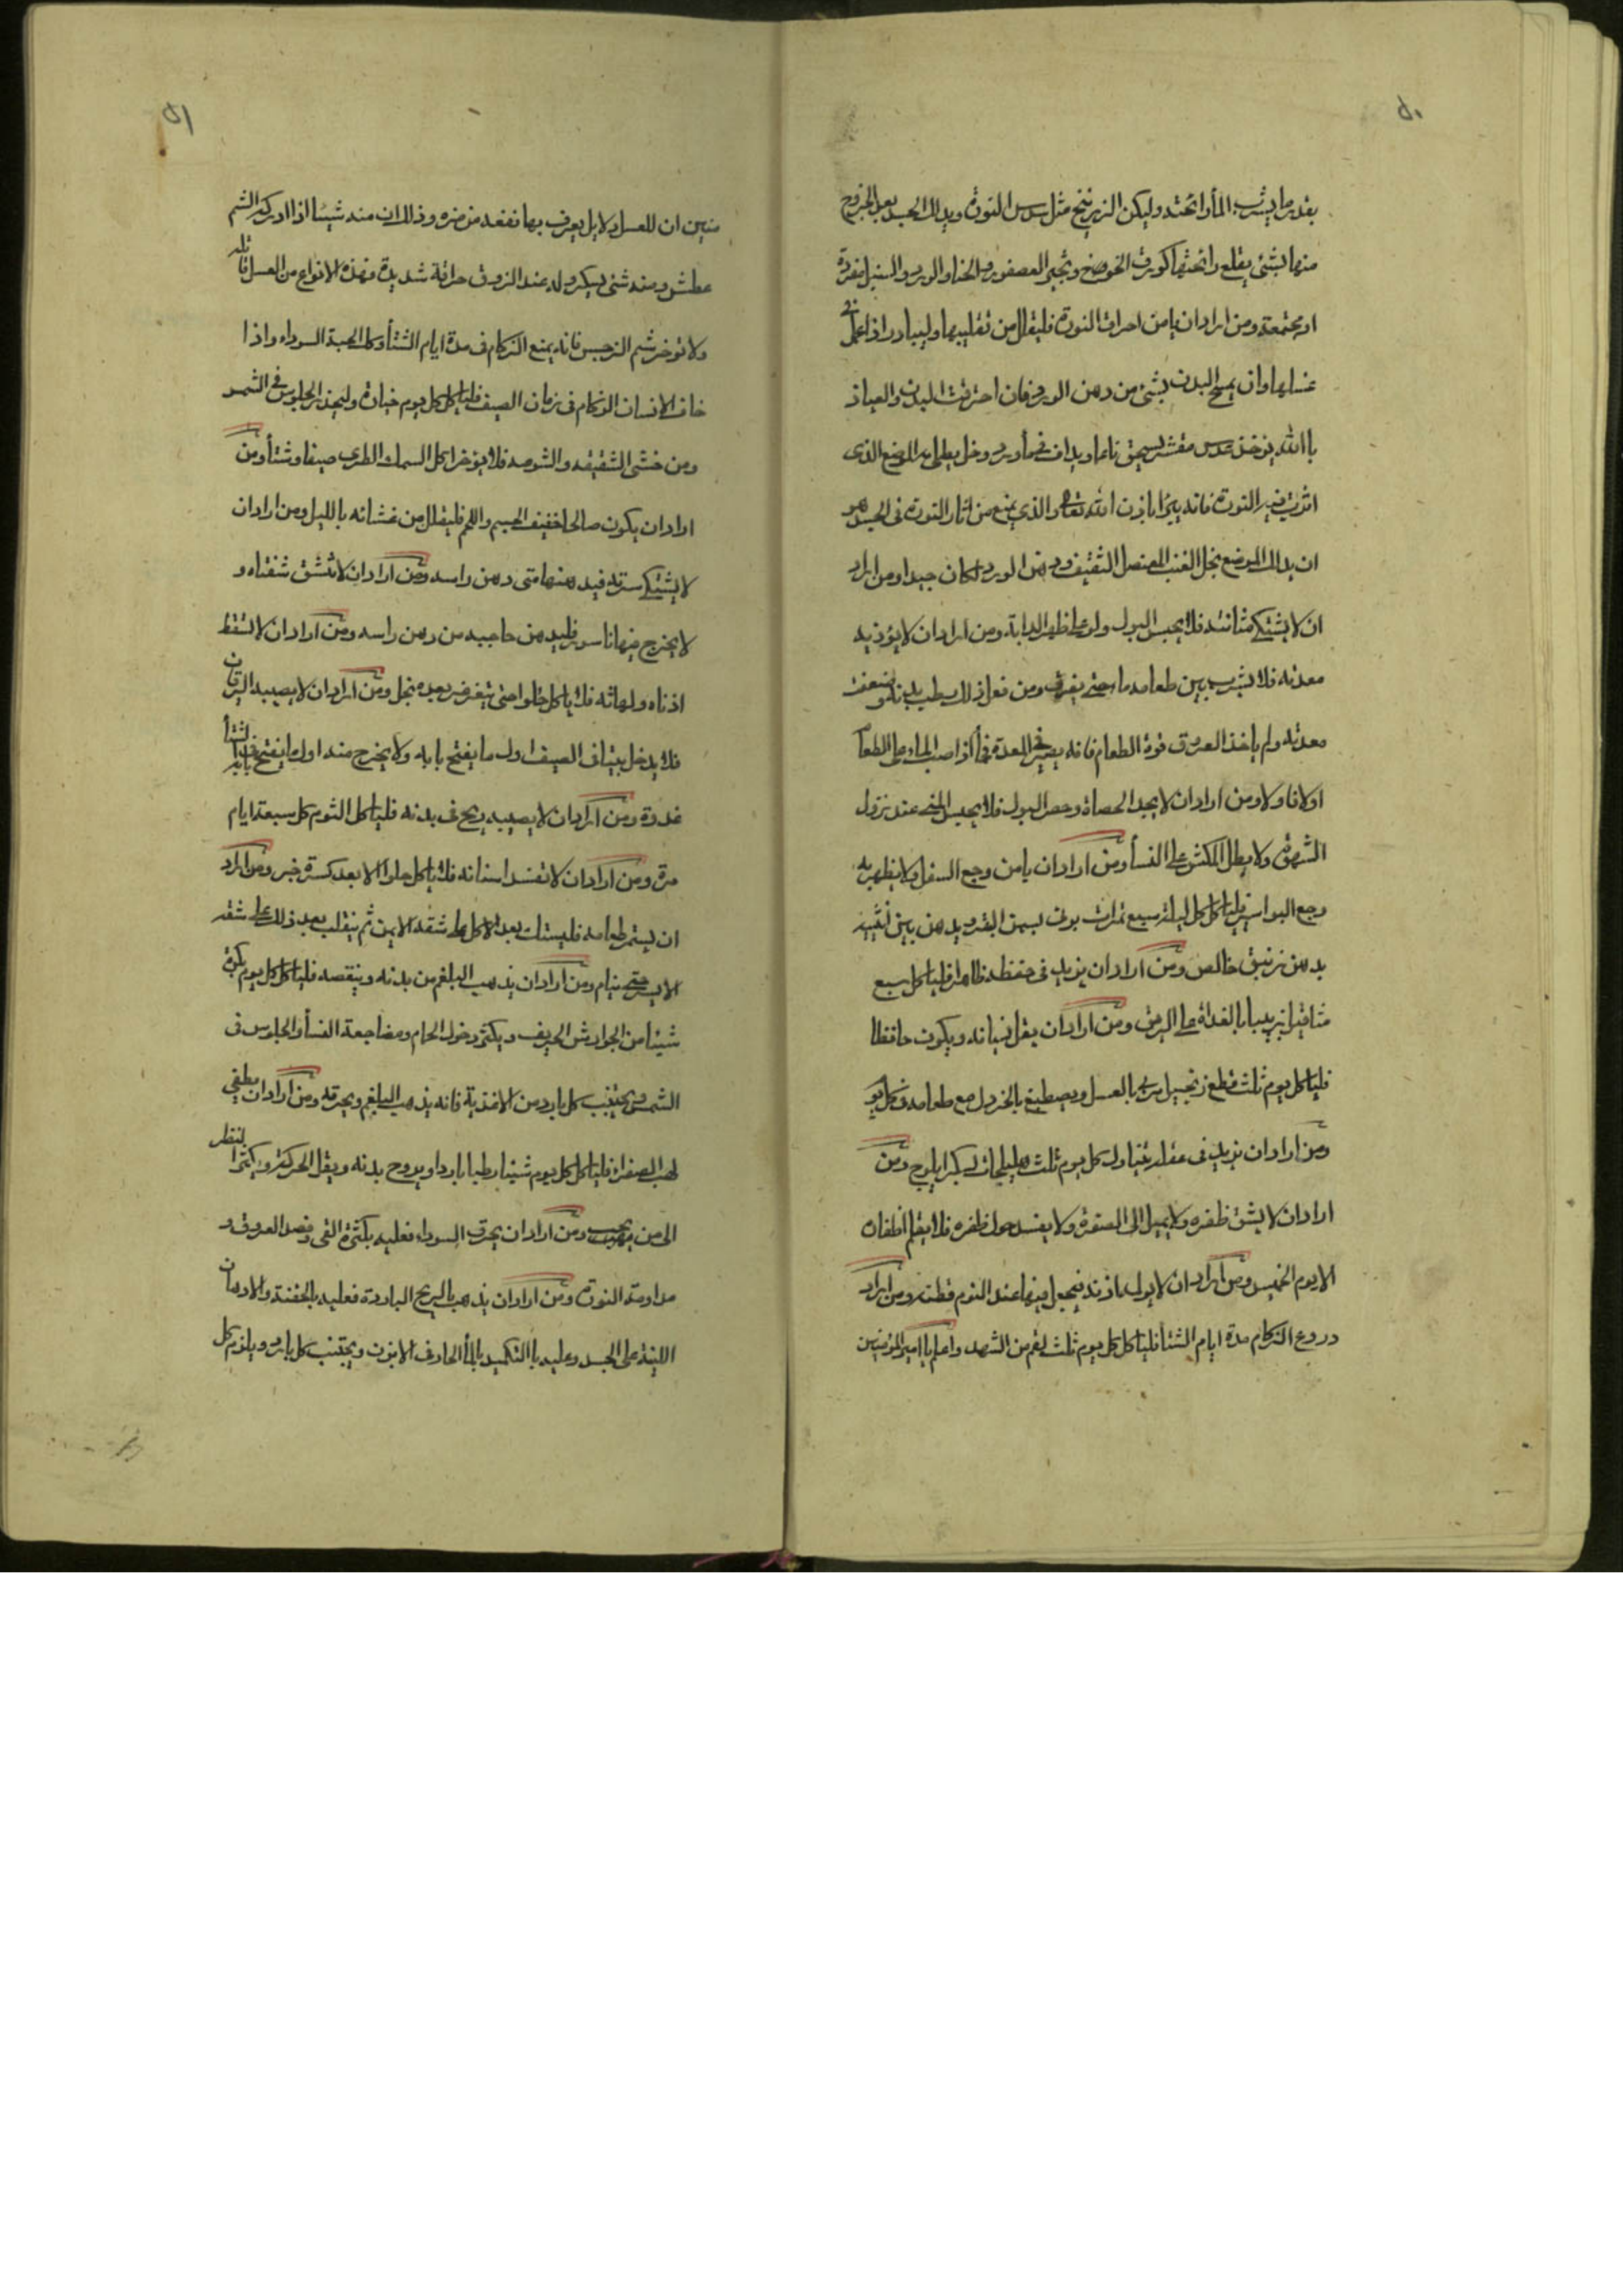 ٥٠
بقدر ما يشرب المأ رائحته وليكن الزرنيخ مثل سدس النورة ويدلك الجسد بعد الخروج
منها بشئ يقلع رائحتها كورق الخوخ وثجير العصفور والحنا والورد والسنبل منفردة
او مجتمعة ومن اراد ان يامن احراق النورة فليقلل من تقليبها وليبادر اذا عمل في
غسلها وان يمسح البدن بشئ من دهن الورد فان احترقت البدن والعياذ
باالله يوخذ عدس مقشر يسحق ناعما ويداف في مأ ورد وخل يطلى به الموضع الذى
اثرت فيه النورة فانه يبرأ باذن الله تعالى والذي يمنع من اثار النورة في الجسد هو
ان يدلك الموضع بخل العنب العنصل الثقيف ودهن الورد لكان جيدا ومن اراد
ان لا يشتكى مثانته فلا يحبس البول ولو على ظهر الدابة ومن اراد ان لا يؤذيه
معدته فلا يشرب بين طعامه ما حتى يفرق ومن فعل ذلك رطب بدنه وضعفت
معدته ولم ياخذ العروق قوة الطعام فانه يصير في المعدة فجا اذا صب الماء على الطعام
اولا فاولا ومن اراد ان لا يجد الحصاة وحصر البول فلا يحبس المنى عند نزول
الشهوة ولا يطل المكث على النسأ ومن اراد ان يامن وجع السفل ولا يظهر به
وجع البواسير فلياكل كل ليلة سبع تمرات برنى بسمن البقر ويدهن بين انثييه
بدهن زنبق خالص ومن اراد ان يزيد في حفظه ظاهرا فلياكل سبع
مثاقيل زبيبا بالغداة على الريق ومن اراد ان يقل نسيانه ويكون حافظا
فلياكل يوم ثلث قطع زنجبيل مربى بالعسل ويصطبغ بالخردل مع طعامه في كل يوم
ومن اراد ان يزيد في عقله يتناول كل يوم ثلث هليلجات بسكر ابلوج ومن
اراد ان لا يشق ظفره ولا يميل الى الصفرة ولا يفسد حول ظفره فلا يقلم اظفاره
الا يوم الخميس ومن اراد ان لا يولم اذنه فيجعل فيها عند النوم قطنة ومن اراد
دروع الزكام مدة ايام الشتأ فلياكل كل يوم ثلث لقم من الشهد واعلم يا امير المؤمنين
٥١
منين ان للعسل دلايل يعرف بها نفعه من ضره وذلك ان منه شيئا اذا ادركه الشم
عطش ومنه شئ يسكر وله عند الذوق حراقة شديدة فهذه الانواع من العسل قاتلة
ولا توخر شم النرجس فانه يمنع الزكام في مدة ايام الشتأ وكذا الحبة السوداء واذا
خاف الانسان الزكام في زمان الصيف فلياكل كل يوم خيارة وليحذر الجلوس في الشمس
ومن خشى الشقيقة والشوصة فلا يؤخر اكل السمك الطرى صيفا وشتأ ومن
اراد ان يكون صالحا خفيف الجسم واللحم فليقلل من عشائه بالليل ومن اراد ان
لا يشتكى سرته فيدهنها متى دهن راسه ومن اراد ان لا تشقق شفتاه و
لا يخرج فيها ناسور فليدهن حاجبيه من دهن راسه ومن اراد ان لا تسقط
اذناه ولهاته فلا ياكل حلوا حتى يتغرغر بعده بخل ومن اراد ان لا يصيبه اليرقان
فلا يدخل بيتا في الصيف اول ما يفتح بابه ولا يخرج منه اول ما يفتح في الشتأ بابه
غدوة ومن اراد ان لا يصيبه ريح في بدنه فلياكل الثوم كل سبعة ايام
مرة ومن اراد ان لا تفسد اسنانه فلا ياكل حلوا الا بعد كسرة خبز ومن اراد
ان يستمر طعامه فليستلك بعد الاكل على شقه الايمن ثم ينقلب بعد ذلك على شقه
الايسر حتى ينام ومن اراد ان يذهب البلغم من بدنه وينقصه فلياكل كل يوم بكرة
شيئا من الجوارش الحريف ويكثر دخول الحمام ومضاجعة النسأ والجلوس في
الشمس ويجتنب كل بارد من الاغذية فانه يذهب البلغم ويحرقه ومن اراد ان يطفي
لهب الصفرا فلياكل كل يوم شيئا رطبا باردا ويروح بدنه ويقل الحركة ويكثر النظر
الى من يحب ومن اراد ان يحرق السوداء فعليه بكثرة القى وفصد العروق و
مداومة النورة ومن اراد ان يذهب بالريح الباردة فعليه بالحقنة والادهان
اللينة على الجسد وعليه باالتكميد بالمأ الحار في الابزن ويجتنب كل بارد ويلزم كل